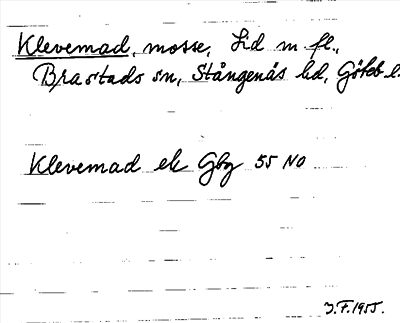 Klevemad, mosse, Lid m. fl.,
Brastads sn, Stångenäs hd, Göteb. l.
Klevemad ek Gbg 55 NO
J.F. 1955.